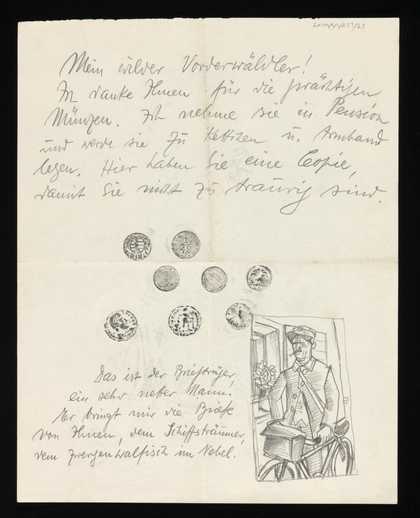 Mein wilder Vorderwäldler!
Ich danke Ihnen für die prächtigen
Münzen. Ich nehme sie in Pension
und werde sie zu Ketten u. Armband
legen. Hier haben Sie eine Copie,
damit Sie nicht zu traurig sind.
Das ist der Briefträger,
ein sehr netter Mann.
Er bringt mir die Briefe
von Ihnen, dem Schiffsträumer,
dem Zwergenwalfisch im Nebel.